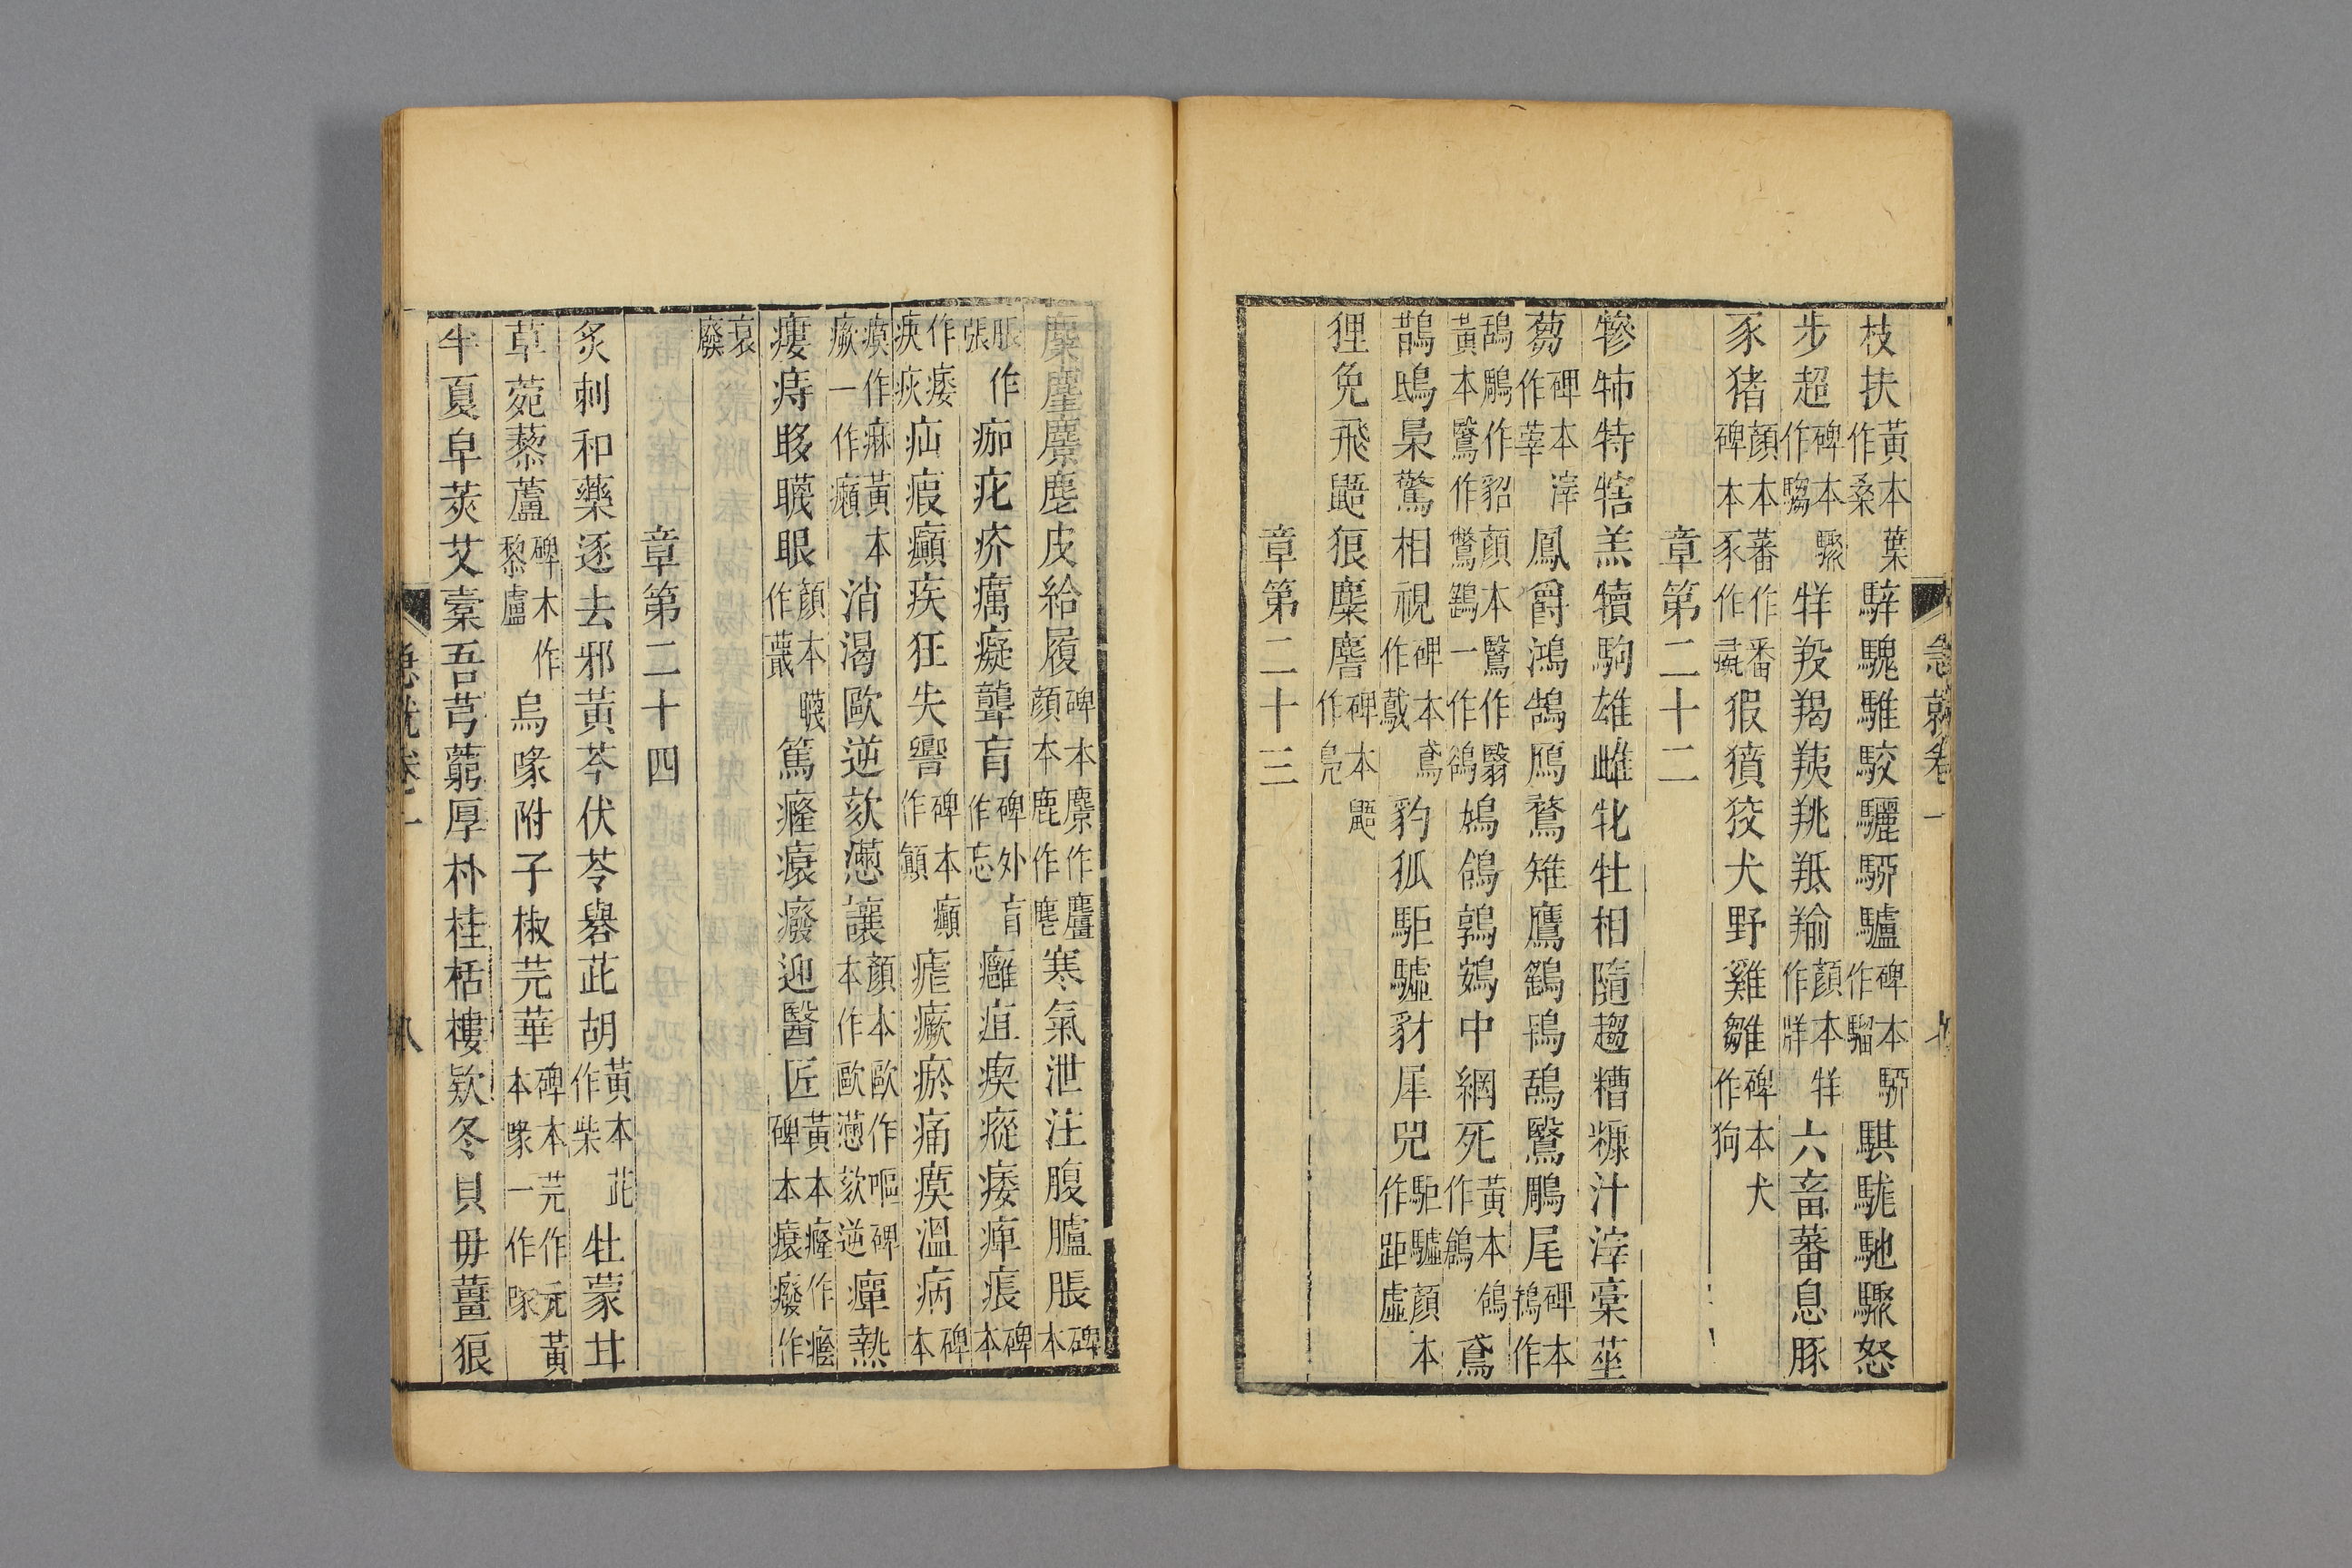 急就卷一
枝扶黃本葉作桑騂騩騅駮驪騢驢碑本騢作騮騏駹馳驟怒
步超碑本驟作騶牂羖羯羠𦍩羝羭顏本牂作牂六畜蕃息豚
豕猪顏本蕃作番碑本豕作彘猳獖狡犬野雞雛碑本犬作狗
章第二十二
犙㸬特犗羔犢駒雄雌牝牡相隨趨糟糠汁滓稾莝
芻碑本滓作莘鳳爵鴻鵠鴈鶩雉鷹鷂鴇鴰鷖鵰尾碑本鴇作
鴰鵰作貂顏本鷖作翳黃本鷖作鷩鷂一作鴿鳩鴿鶉鴳中網死黃本鴿作鶬鳶
鵲鴟梟驚相視碑本鳶作䳒豹狐駏驉豺犀兕駏驉顏本作距虛
狸兔飛鼯狼麋䴦碑本鼯作鳧
章第二十三
麋麈麖麀皮給履碑本麖作麠顏本麀作鹿寒氣泄注腹臚脹碑本
脹作張痂疕疥癘癡聾盲碑外盲作忘癰疽瘛瘲痿痺痮碑本
痿作疾疝瘕癲疾狂失響碑本癲作顛瘧瘚瘀痛瘼溫病碑本
瘼作痳黃本瘚一作癩消渴歐逆欬懣讓顏本歐作嘔碑本作歐懣欬逆癉熱
瘻痔眵䁾眼顏本䁾作蔑篤癃㾕癈迎醫匠黃本癃作㾜碑本㾕癈作
衰廢
章第二十四
炙刺和藥逐去邪黃芩伏苓礜茈胡黃本茈作柴牡蒙甘
草菀藜蘆碑本作黎盧烏喙附子椒芫華碑本芫作元黃本喙一作㖨
半夏皁莢艾橐吾芎藭厚朴桂栝樓款冬貝母薑狼
急就卷一
八